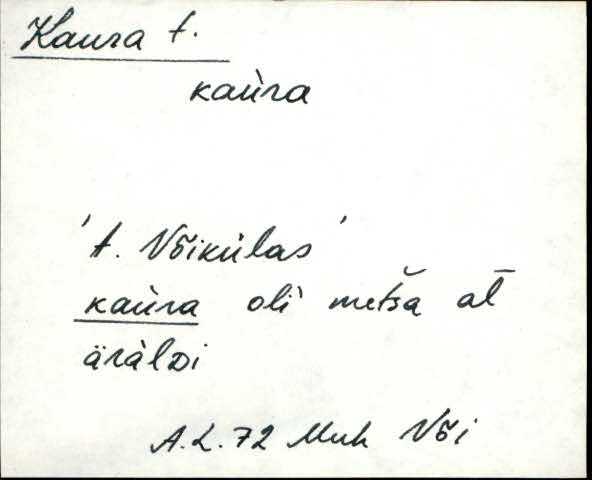 Kaura t.
kaùra
't. Võikülas'
kaùra oli metša al̄
äràldi
A.L. 72 Muh Või